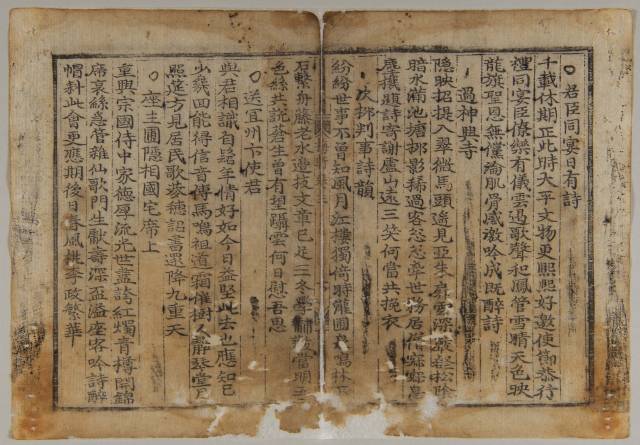 ○君臣同宴日有詩
千載休期正此時太平文物更熙熙好邀使御恭行
禮同宴臣僚樂有儀雲迥歌聲和鳳管雪晴天色映
龍旗聖恩無儻淪肌骨感激吟成旣醉詩
○過神興寺
隱映招提入翠微馬頭遙見
雲深
松陰
暗水滿池塘柳影稀過客忩忩
世務居僧寂寂
塵機題詩寄謝廬山遠三笑何當共挽衣
○次柳判事詩韻
紛紛世事不曾知風月江樓獨倚時
林下
石繫舟藤老水邊枝文章已足三冬學
當明主
色絲共說蒼生曾有望躡雲何日慰吾思
○送宜州卞使君
與君相識自髫年情好如今日益堅此去也應知己
少幾回能得信音傳馬鳴祖道霜催樹人靜琴堂月
照筵方見居民歌蔽
詔書還降九重天
○座主圃隱相國宅席上
重興宗國侍中家德厚流光世盡誇紅燭青樽開錦
席哀絲急管雜仙歌門生獻壽深盃溢座客吟詩醉
帽斜此會更應期後日春風桃李政繁華